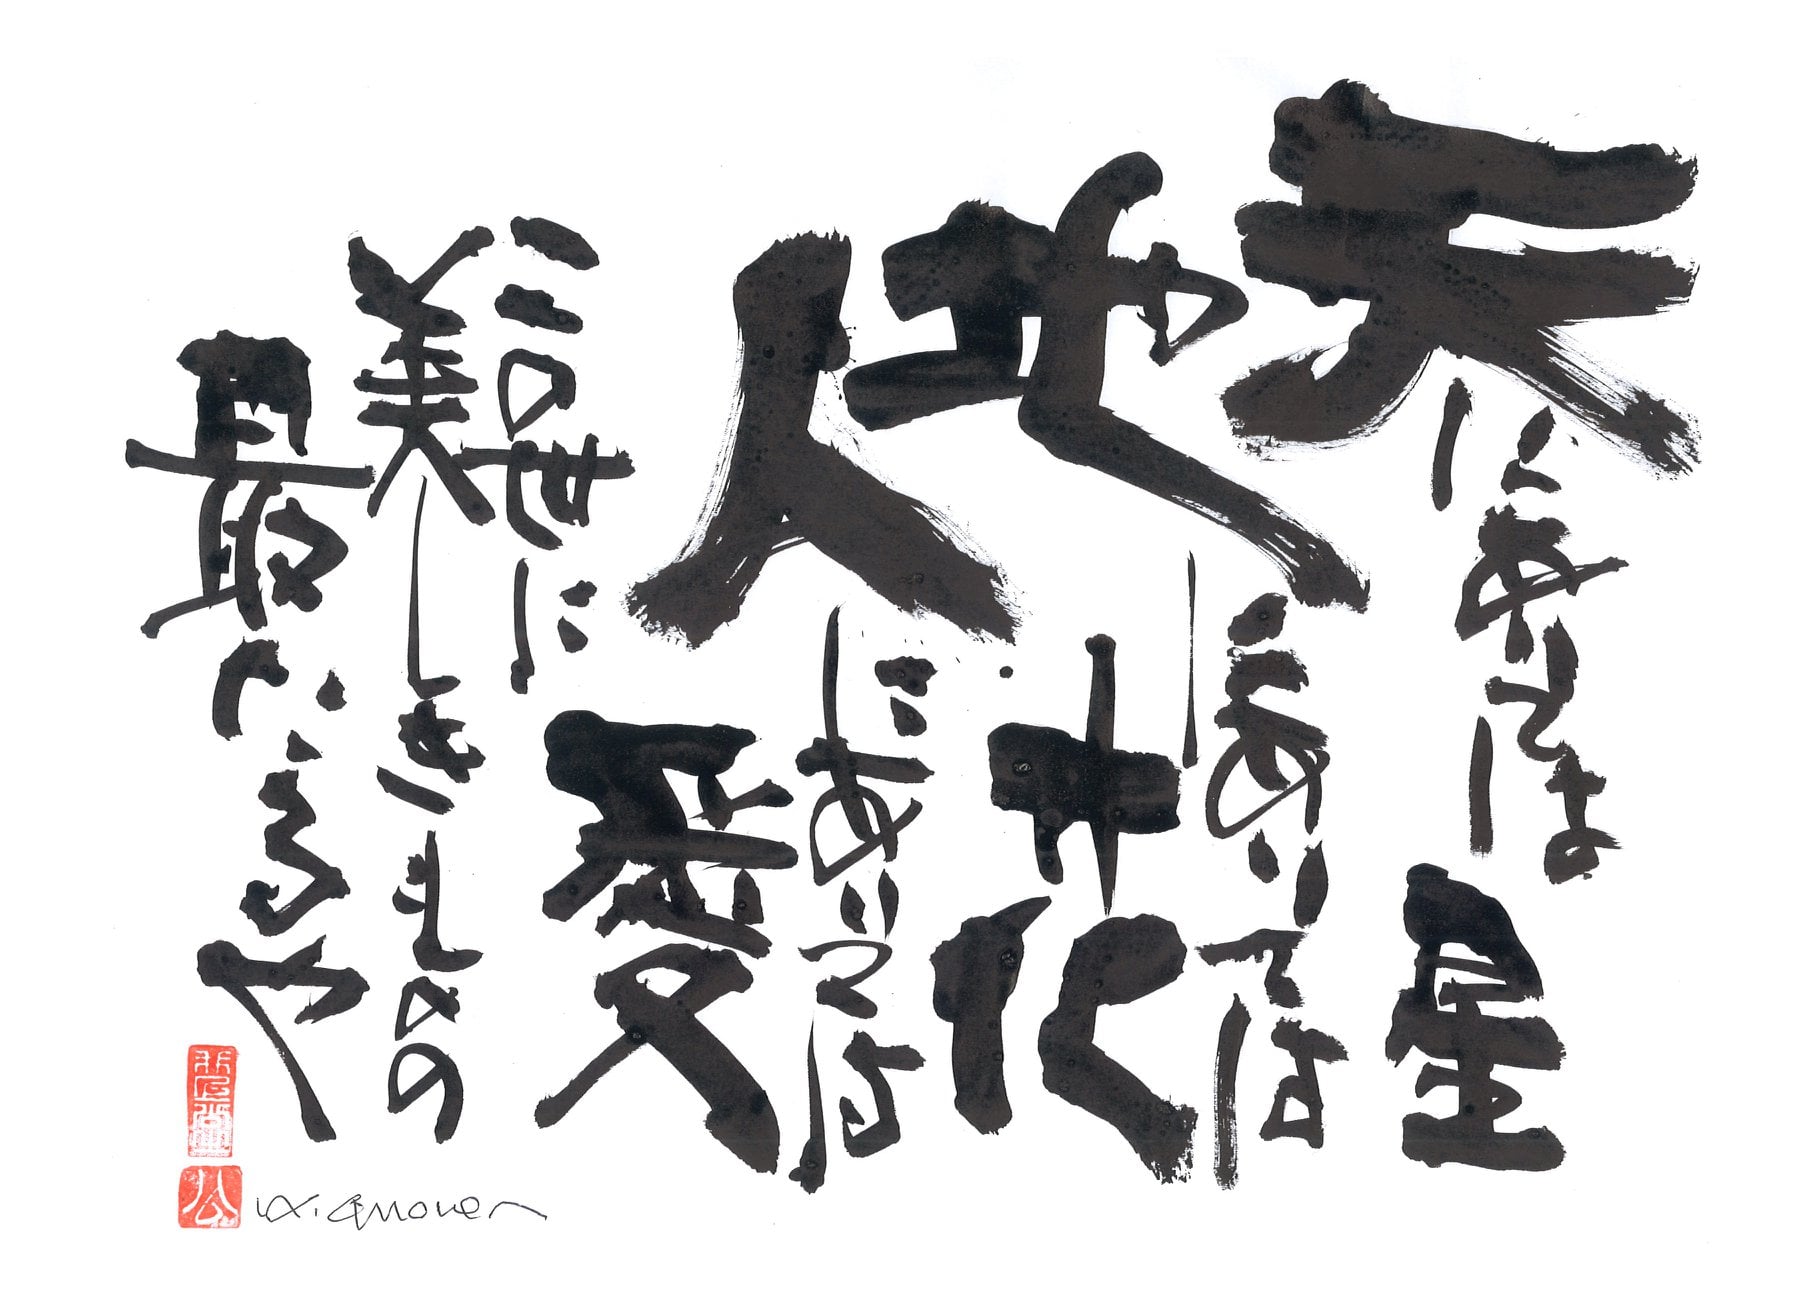 天にありては星
地にありては花
人にありては愛
この世に
美しきものの
最たるや
公